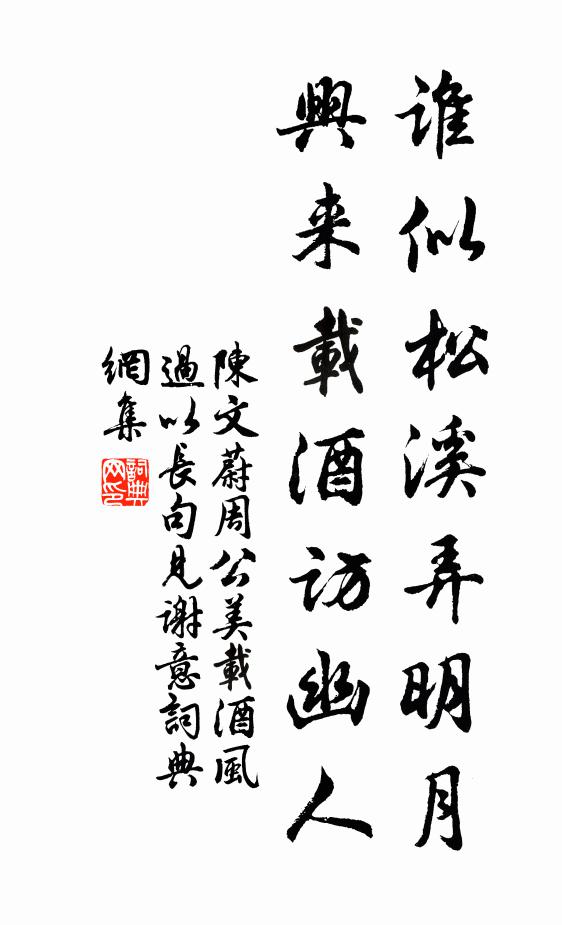 谁似松溪弄明月
興来載酒訪幽人
陳文蔚周公美載酒風
過以長句見謝意詞典
網集
詞典
网印